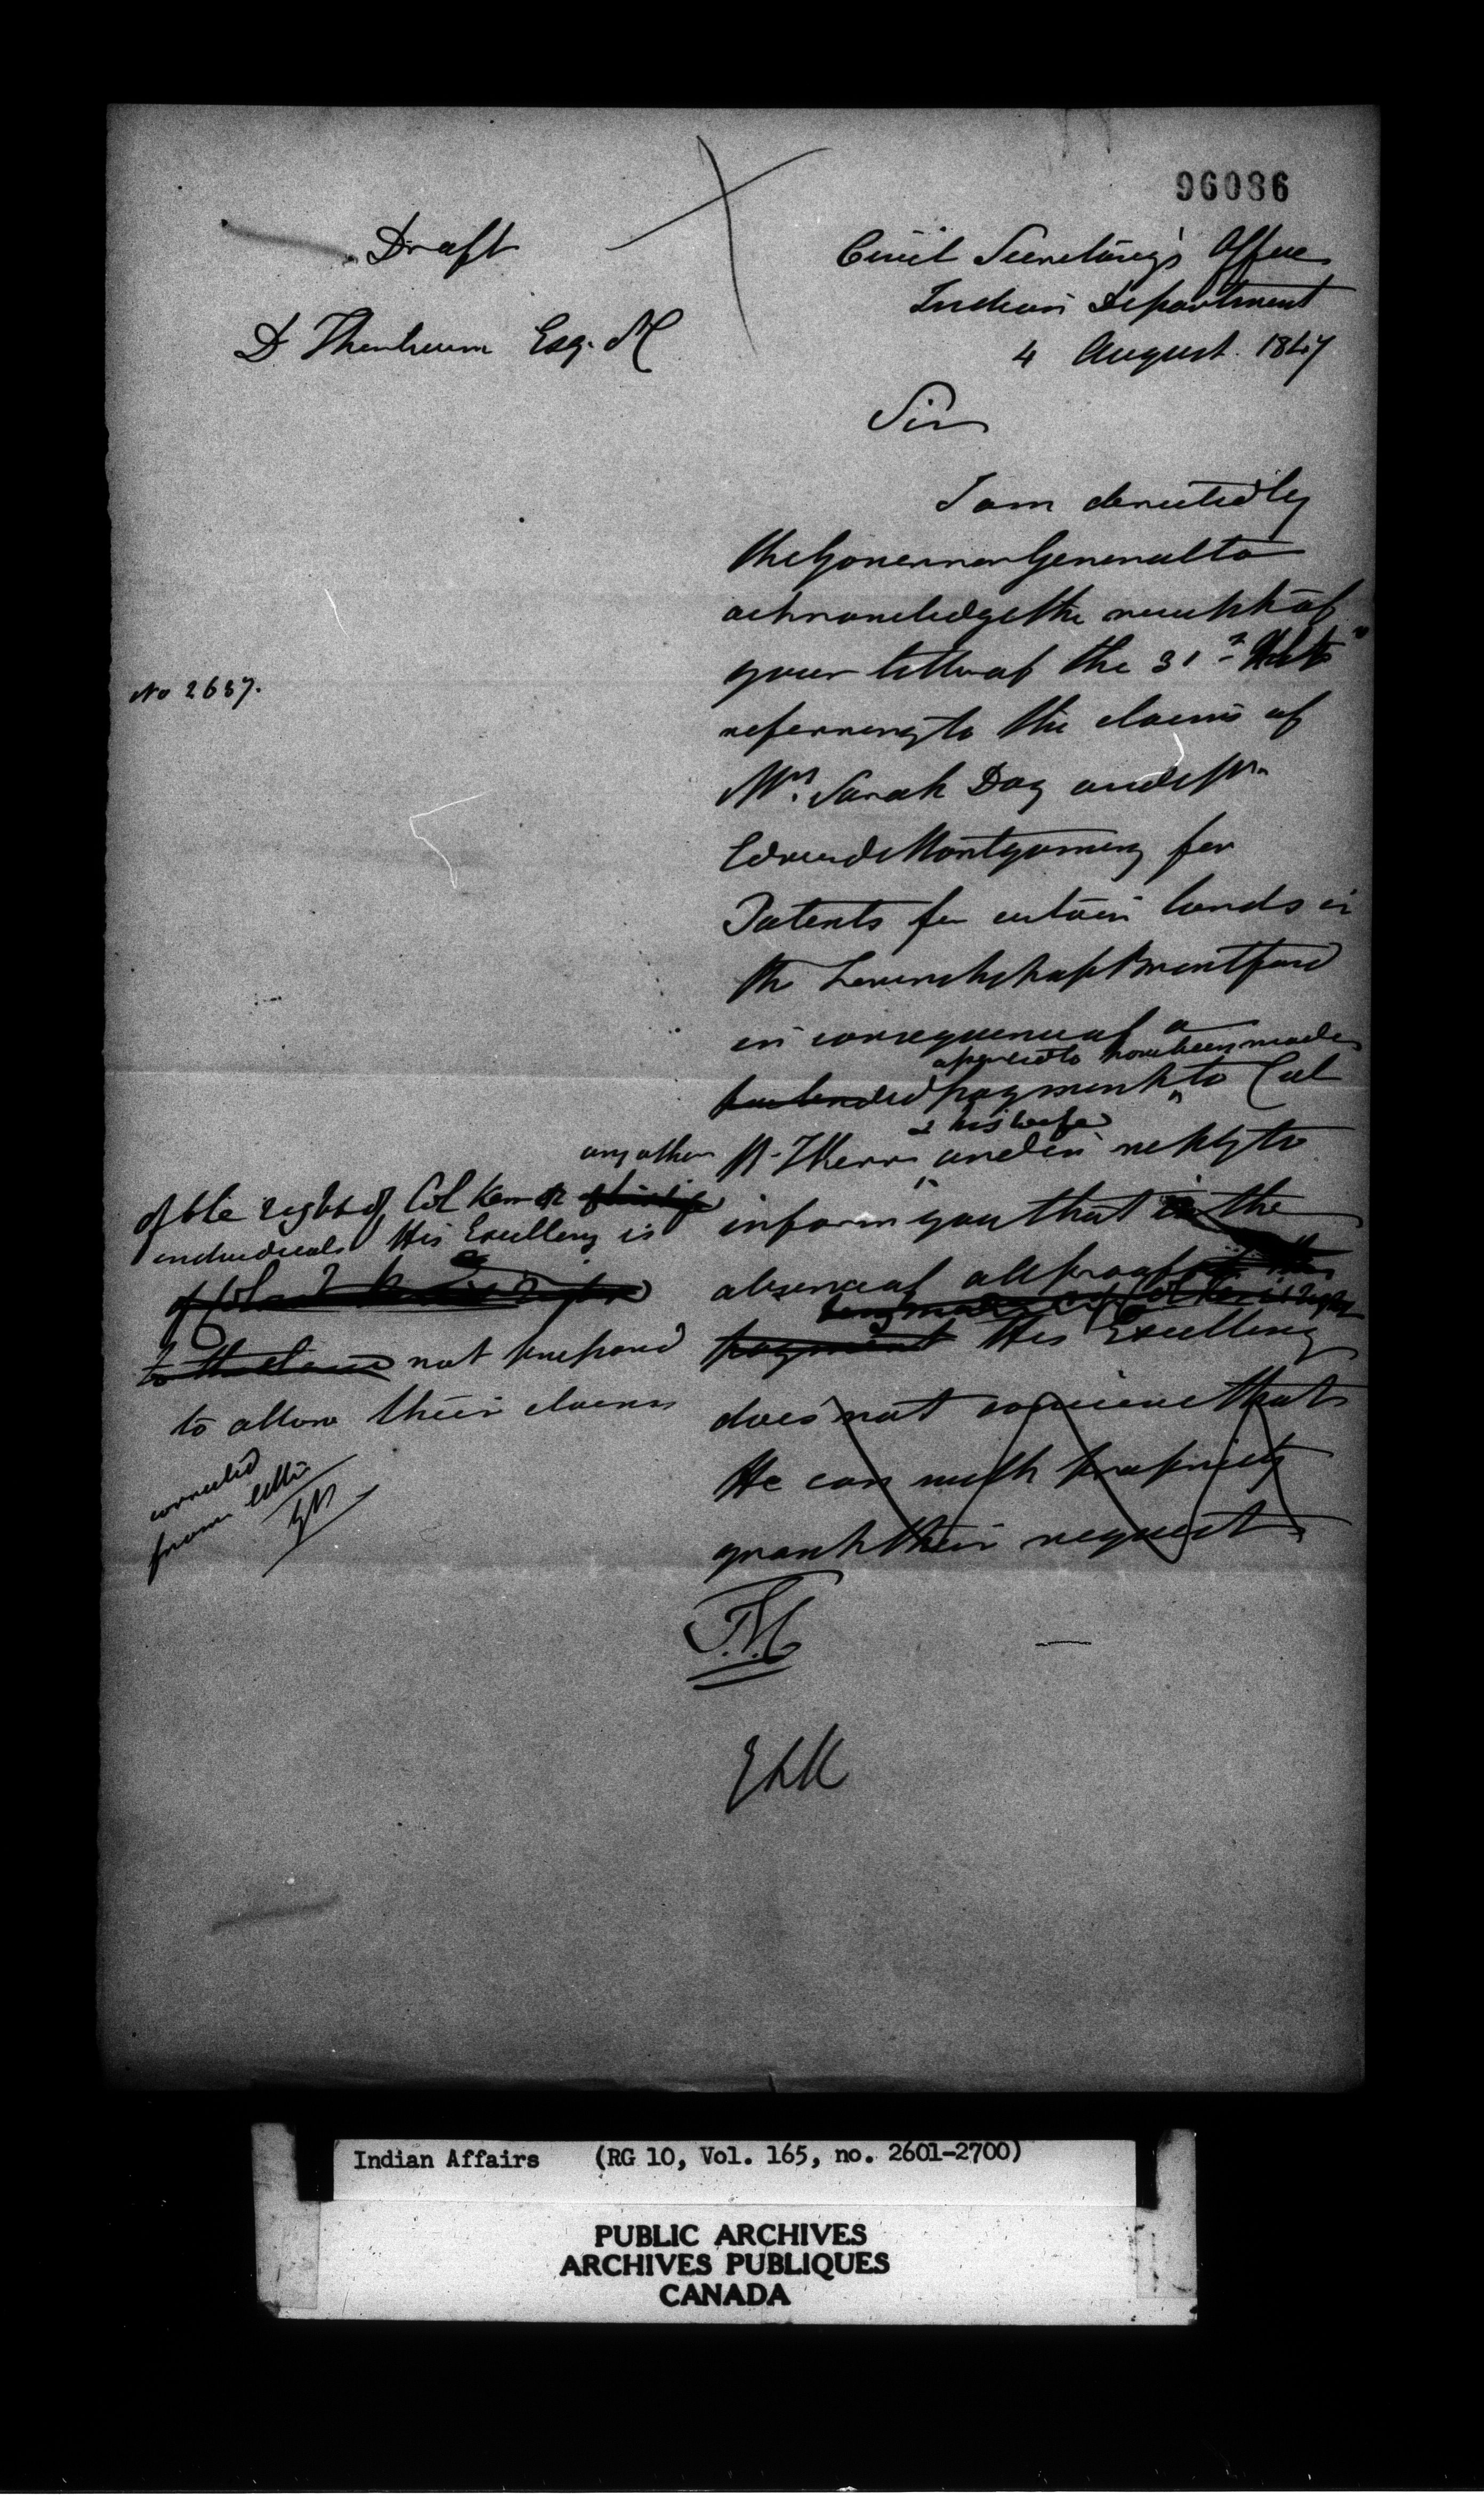 96086
Draft
Civil Secretary's Office
Indian Department
D Thorburn Esq. M
4 August. 1847
Sir
I am directed by
the Governor General to
acknowledge the receipt of
your letter of the 31st
No 2637.
referring to the claims of
Mrs. Sarah Day and Mr
Edward Montgomery for
Patents for certain lands in
the Township of Brantford
in consequence of a
appeared to have been made
pretended payment to Col
& his wife
W. J Kerr and in reply to
inform you that in the
absence of all proof
payment His Excellency
does not conceive that
He can with propriety
grant their request
any other
of the right of Col Kerr or
individual His Excellency is
to the claim not prepared
to allow their claims
corrected
from letter
T.M.
Indian Affairs (RG 10, Vol. 165, no. 2601-2700)
PUBLIC ARCHIVES
ARCHIVES PUBLIQUES
CANADA